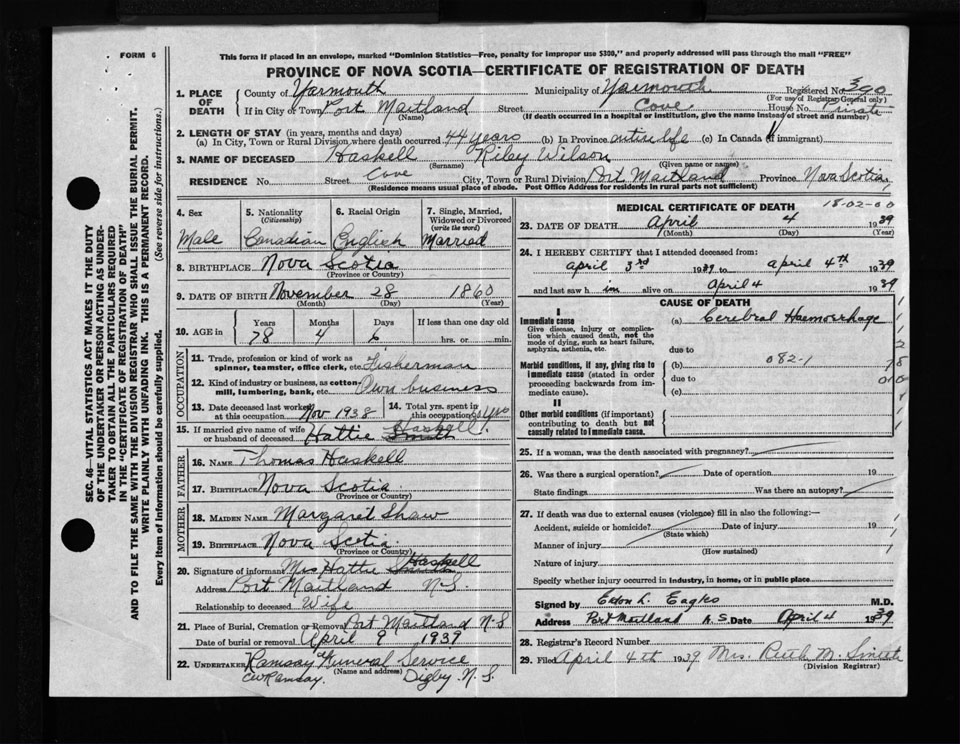 FORM 6
This form if placed in an envelope, marked "Dominion Statistics—Free, penalty for improper use $300," and properly addressed will pass through the mail "FREE"
PROVINCE OF NOVA SCOTIA—CERTIFICATE OF REGISTRATION OF DEATH
SEC. 46—VITAL STATISTICS ACT MAKES IT THE DUTY
OF THE UNDERTAKER OR PERSON ACTING AS UNDER-
TAKER TO OBTAIN ALL THE PARTICULARS REQUIRED
IN THE "CERTIFICATE OF REGISTRATION OF DEATH"
AND TO FILE THE SAME WITH THE DIVISION REGISTRAR WHO SHALL ISSUE THE BURIAL PERMIT.
WRITE PLAINLY WITH UNFADING INK. THIS IS A PERMANENT RECORD.
Every item of information should be carefully supplied. (See reverse side for instructions.)
1. PLACE OF DEATH County of Yarmouth Municipality of Yarmouth Registered No. 390
(For use of Registrar General only)
If in City or Town Port Maitland Street Cove House No. Private
(Name) (If death occurred in a hospital or institution, give the name instead of street and number)
2. LENGTH OF STAY (in years, months and days)
(a) In City, Town or Rural Division where death occurred 44 years (b) In Province entire life (c) In Canada (if immigrant)
3. NAME OF DECEASED Haskell Riley Wilson
(Surname) (Given name or names)
RESIDENCE No. Street Cove City, Town or Rural Division Port Maitland Province Nova Scotia
(Residence means usual place of abode. Post Office Address for residents in rural parts not sufficient)
4. Sex 5. Nationality (Citizenship) 6. Racial Origin 7. Single, Married, Widowed or Divorced (write the word)
Male Canadian English Married
8. BIRTHPLACE Nova Scotia
(Province or Country)
9. DATE OF BIRTH November 28 1860
(Month) (Day) (Year)
10. AGE in Years Months Days If less than one day old
78 4 6 hrs. or min.
OCCUPATION
11. Trade, profession or kind of work as spinner, teamster, office clerk, etc. Fisherman
12. Kind of industry or business, as cotton-mill, lumbering, bank, etc. Own business
13. Date deceased last worked at this occupation Nov 1938 14. Total yrs. spent in this occupation yrs
15. If married give name of wife or husband of deceased Hattie Smith Haskell
FATHER
16. NAME Thomas Haskell
17. BIRTHPLACE Nova Scotia
(Province or Country)
MOTHER
18. MAIDEN NAME Margaret Shaw
19. BIRTHPLACE Nova Scotia
(Province or Country)
20. Signature of informant Mrs Hattie Haskell
Address Port Maitland N-S
Relationship to deceased Wife
21. Place of Burial, Cremation or Removal Port Maitland N-S
Date of burial or removal April 9 1939
22. UNDERTAKER Ramsay Funeral Service
(Name and address)
CW Ramsay. Digby N. S.
MEDICAL CERTIFICATE OF DEATH 18-02-00
23. DATE OF DEATH April 4 1939
(Month) (Day) (Year)
24. I HEREBY CERTIFY that I attended deceased from:
April 3rd 1939 to April 4th 1939
and last saw h im alive on April 4 1939
CAUSE OF DEATH
I
Immediate cause (a) Cerebral Haemorrhage
Give disease, injury or complication which caused death, not the mode of dying, such as heart failure, asphyxia, asthenia, etc.
due to
082-1
Morbid conditions, if any, giving rise to immediate cause (stated in order proceeding backwards from immediate cause). (b)
due to
(c)
II
Other morbid conditions (if important) contributing to death but not causally related to immediate cause.
25. If a woman, was the death associated with pregnancy?
26. Was there a surgical operation? Date of operation 19
State findings Was there an autopsy?
27. If death was due to external causes (violence) fill in also the following:—
Accident, suicide or homicide? Date of injury 19
(State which)
Manner of injury
(How sustained)
Nature of injury
Specify whether injury occurred in industry, in home, or in public place
Signed by M.D.
Address Port Maitland N.S. Date April 4 1939
28. Registrar's Record Number
29. Filed April 4th 1939 Mrs. Ruth M. Smith
(Division Registrar)